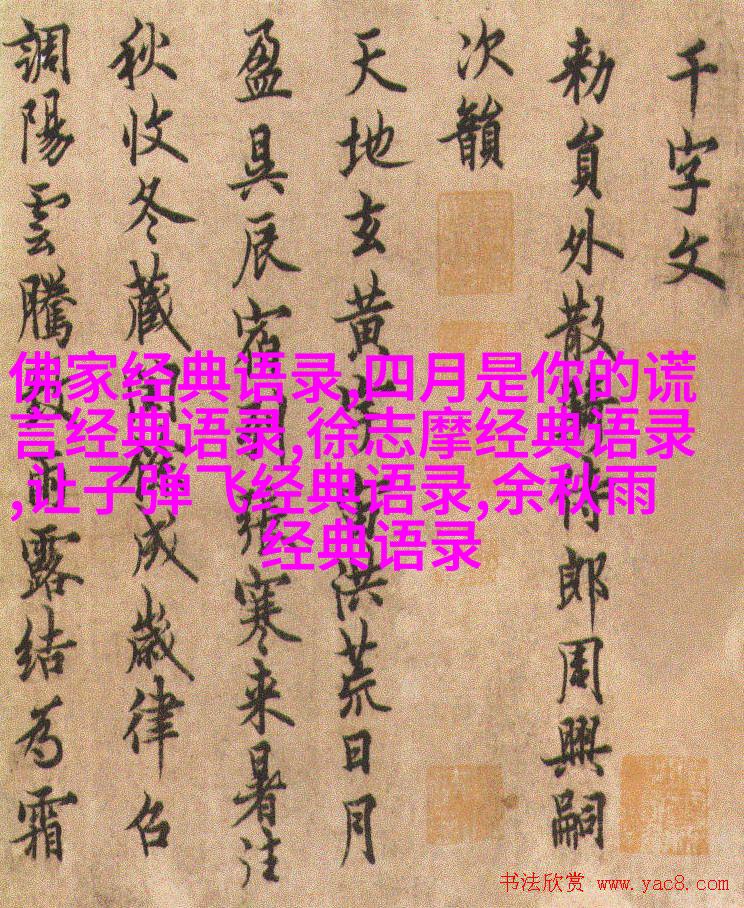 千字文
勑員外散騎侍郎周興嗣
次韻
天地玄黃宇宙洪荒日月
盈昃辰宿列張寒來暑往
秋收冬藏閏餘成歲律召
調陽雲騰致雨露結為霜
佛家经典语录,四月是你的谎
言经典语录,徐志摩经典语录
,让子弹飞经典语录,余秋雨
经典语录
书法欣赏 www.yac8.com